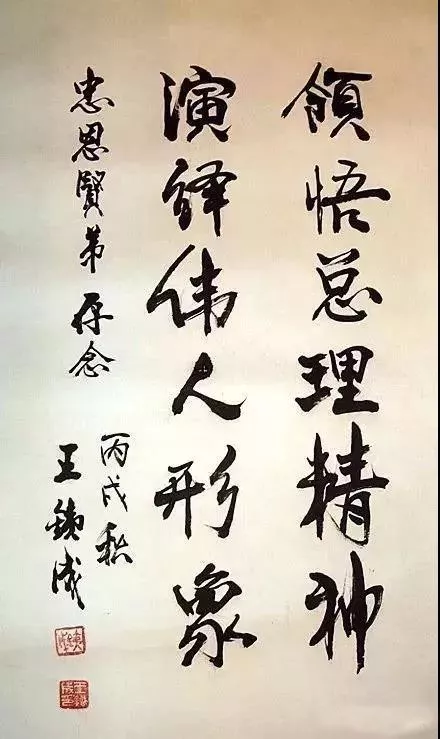 領悟总理精神
演绎伟人形象
忠恩賢弟存念
丙戌秋
王鐵成